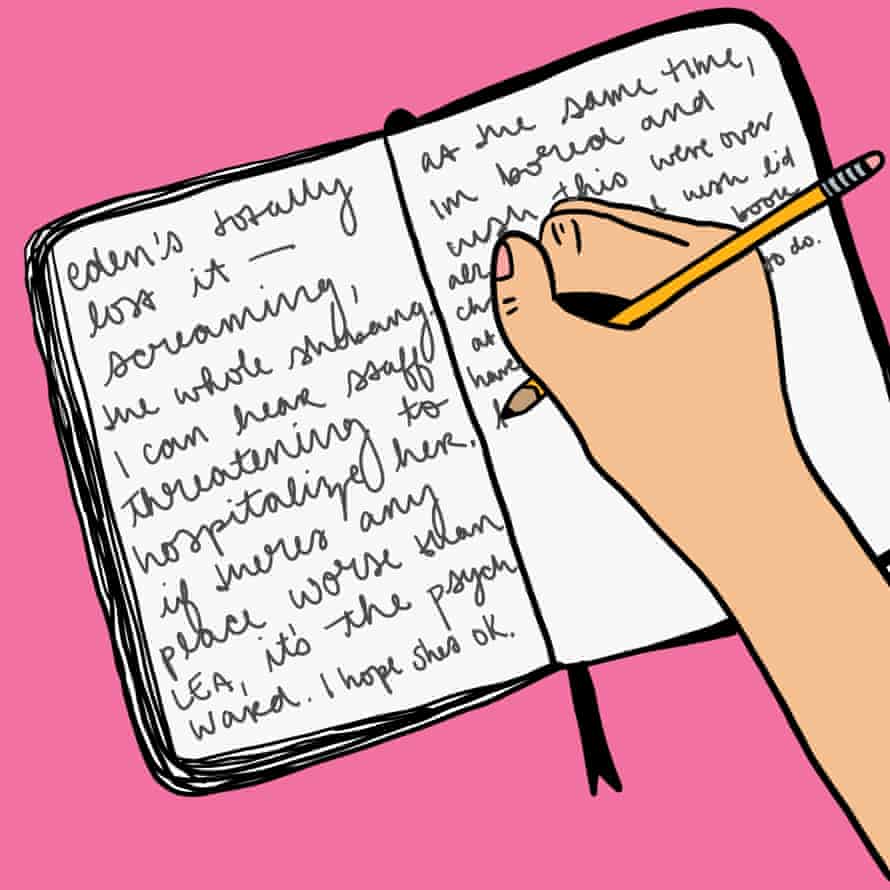 eden's totally
lost it —
screaming,
the whole shebang.
I can hear staff
threatening to
hospitalize her.
if theres any
place worse than
LEA, it's the psych
ward. I hope shes ok.
at the same time,
im bored and
wish this were over
wish id
book
to do.
at
have